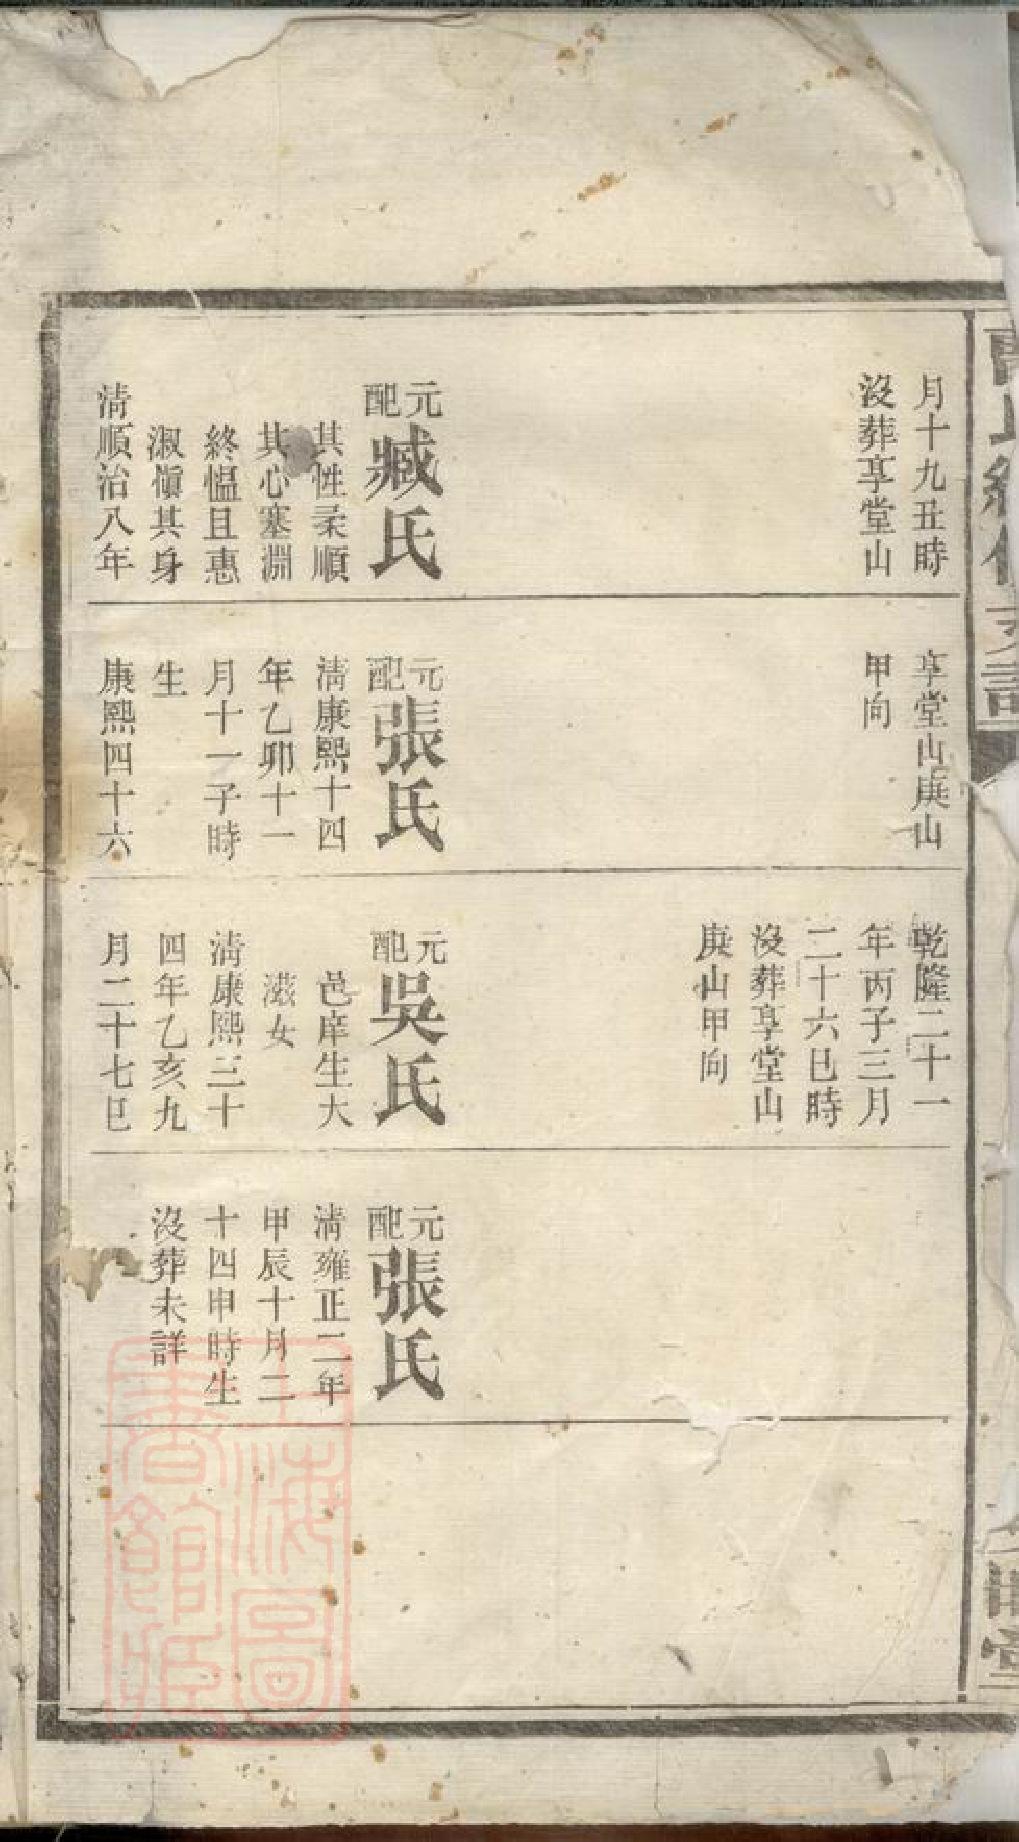 月十九丑時
沒葬享堂山
元配臧氏
其性柔順
其心塞淵
終愠且惠
淑慎其身
清順治八年
享堂山庚山
甲向
元配張氏
清康熙十四
年乙卯十一
月十一子時
生
康熙四十六
乾隆二十一
年丙子三月
二十六巳時
沒葬享堂山
庚山甲向
元配吳氏
邑庠生大
滋女
清康熙三十
四年乙亥九
月二十七巳
元配張氏
清雍正二年
甲辰十月二
十四申時生
沒葬未詳
上海圖
書館藏